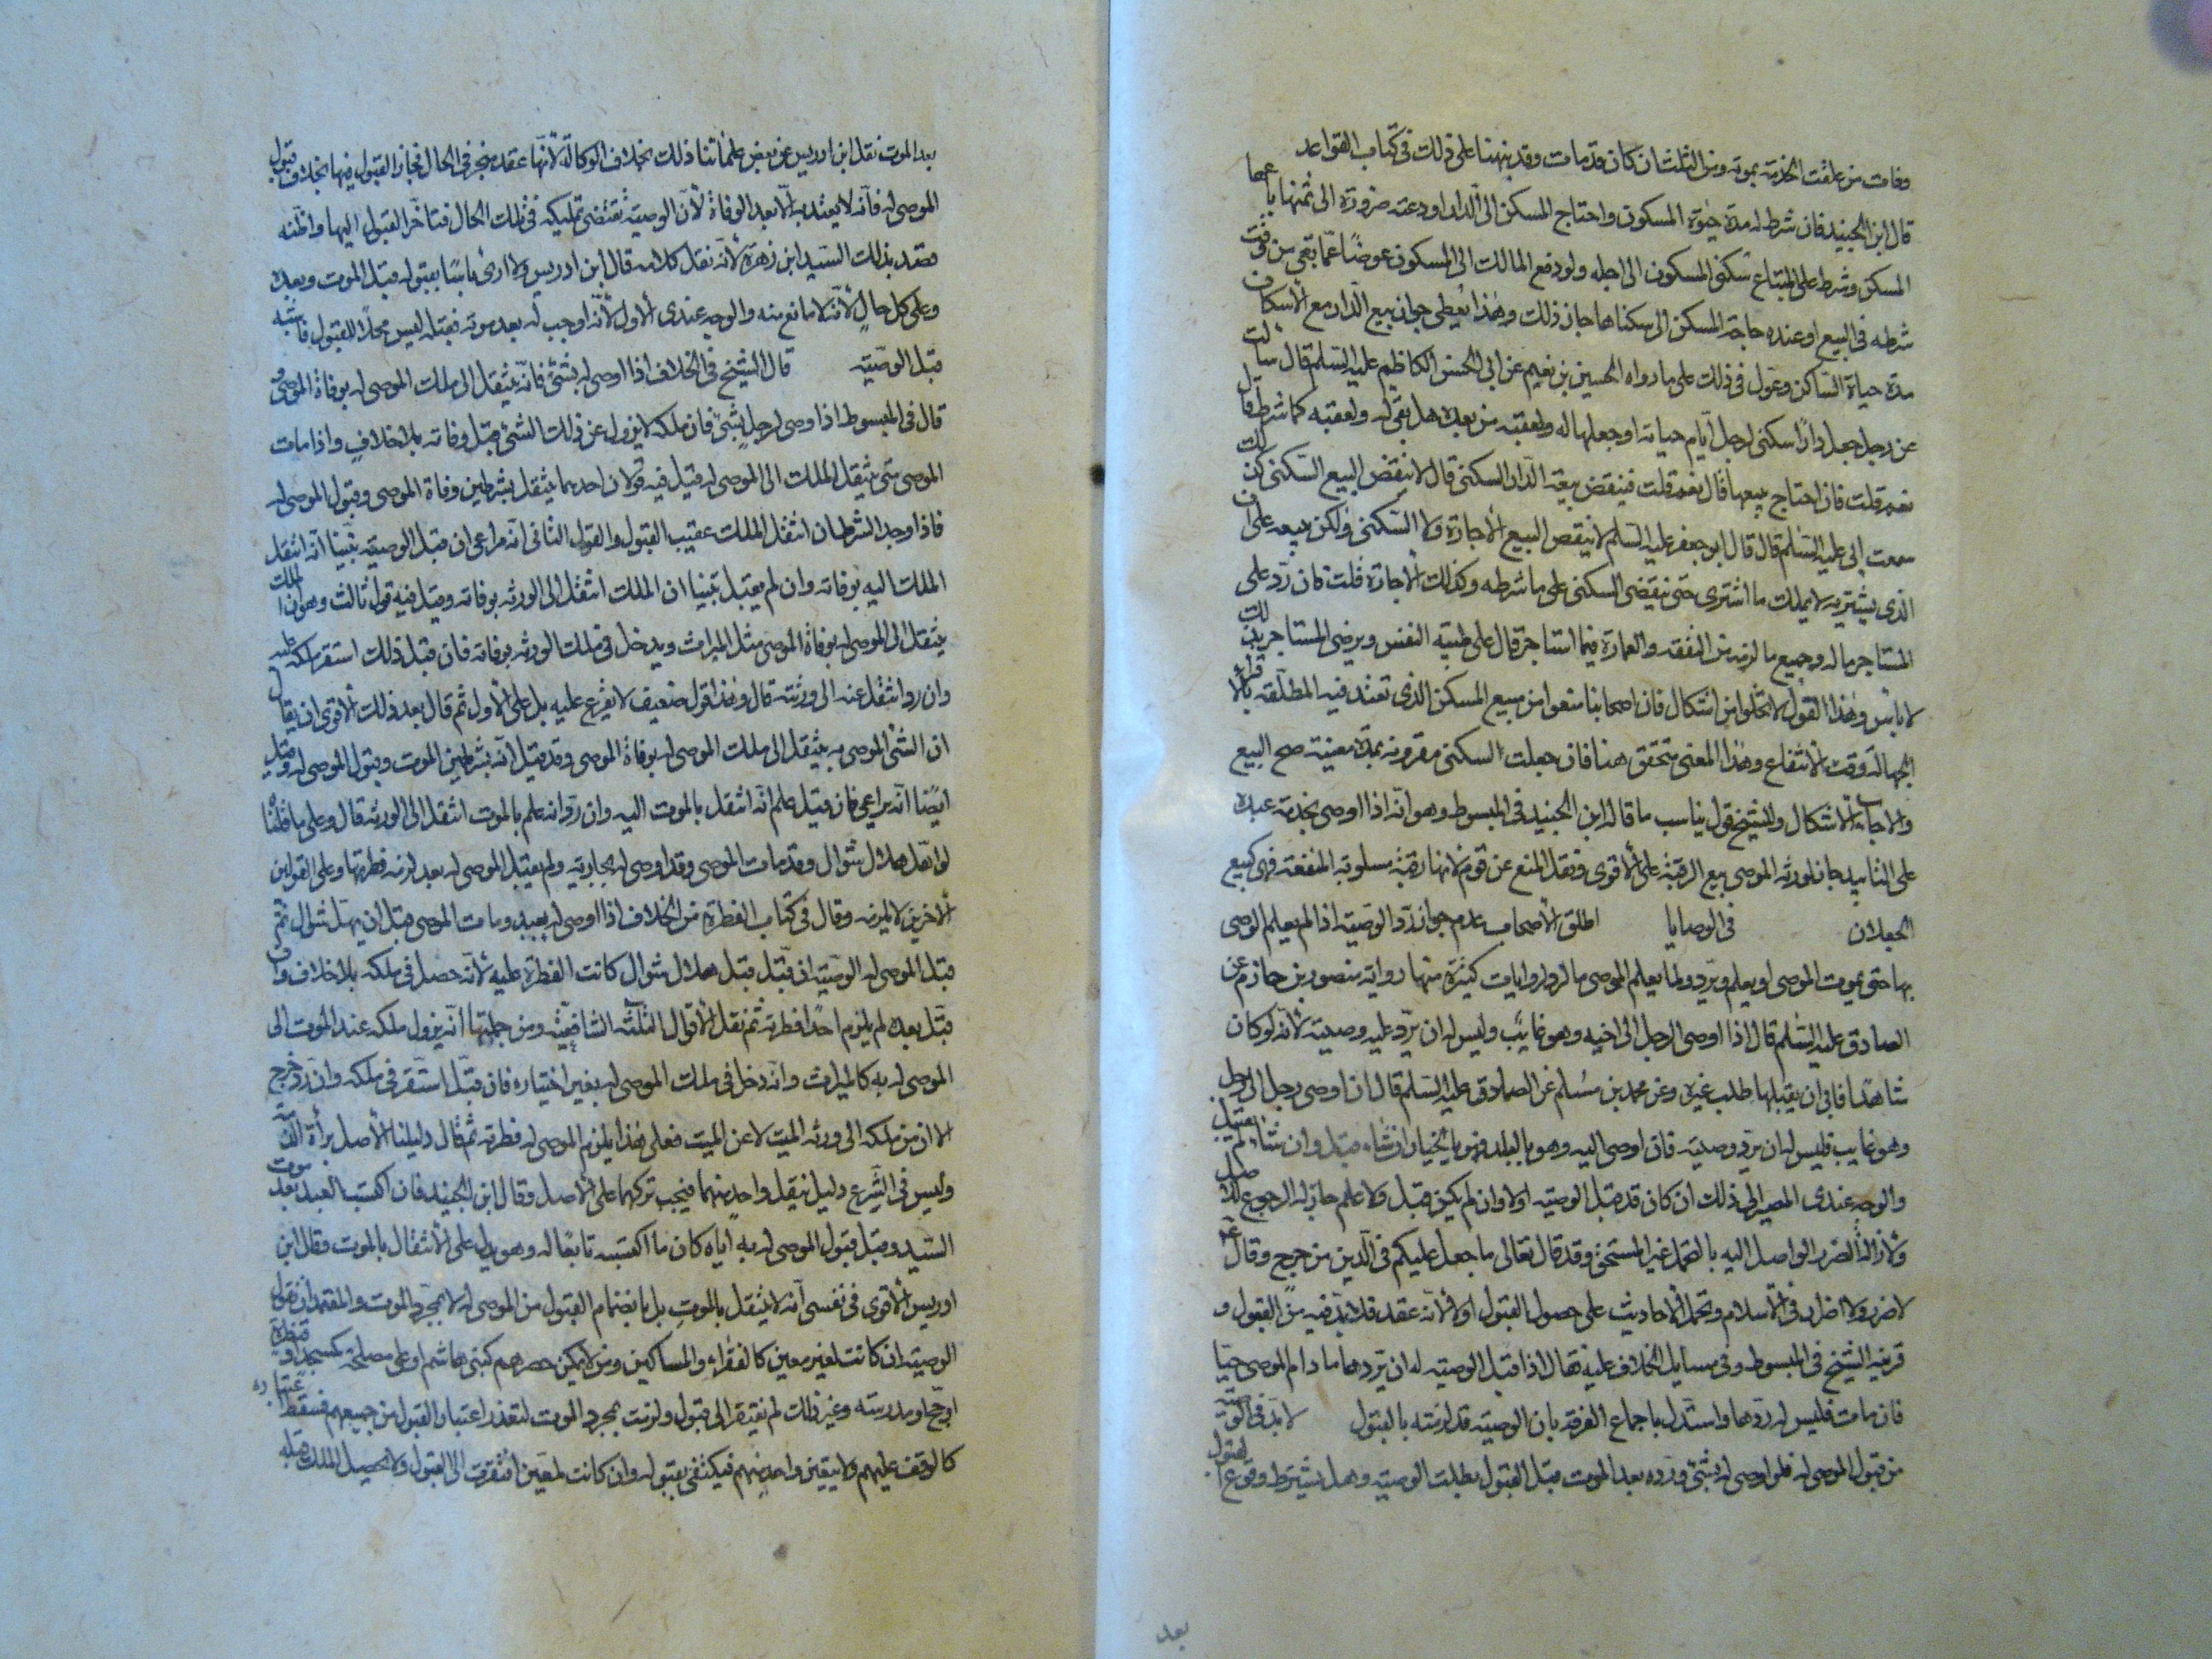 وفات من علقت الخدمة بموته ومن الثلث ان كان قد مات وقد نبهنا على ذلك فى كتاب القواعد
قال ابن الجنيد فان شرط له مدة حيوة المسكون واحتاج المسكن الى الدار او دعته ضرورة الى ثمنها باعها
المسكن وشرط على المبتاع سكنى المسكون الى اجله ولو دفع المالك الى المسكون عوضا عما بقى من وقت
شرطه فى البيع او عنده حاجة المسكن الى سكناها جاز ذلك وهذا يعطى جواز بيع الدار مع الاسكان
مدة حياة الساكن وعول فى ذلك على ما رواه الحسين بن نعيم عن ابى الحسن الكاظم عليه السلم قال سألت
عن رجل جعل دارا سكنى لرجل ايام حياته او جعلها له ولعقبه من بعده هل بقى له ولعقبه كما شرط قال
نعم قلت فان احتاج يبيعها قال نعم قلت فينقض بيعه الدار السكنى قال لا ينقض البيع السكنى كذلك
سمعت ابى عليه السلم قال قال ابو جعفر عليه السلم لا ينقض البيع الاجارة ولا السكنى ولكن يبيعه على ان
الذى يشتريه لا يملك ما اشترى حتى ينقضى السكنى على ما شرطه وكذلك الاجارة قلت فان رد على
المستاجر ماله وجميع ما لزمه من النفقه والعمارة فيما استاجر قال على طيبة النفس ويرضى المستاجر بذلك
لا بأس وهذا القول لا تخلوا من اشكال فان اصحابنا منعوا من بيع المسكن الذى تعتد فيه المطلقه بالاقراء
لجهالة وقت الانتفاع وهذا المعنى متحقق هنا فان جعلت السكنى مقرونه بمدة معينة صح البيع
والاجاء الاشكال وللشيخ قول يناسب ما قاله ابن الجنيد فى المبسوط وهو انه اذا اوصى بخدمة عبده
على التابيد جاز لورثه الموصى بيع الرقبة على الاقوى ونقل المنع عن قوم لانها رقبة مسلوبة المنفعة فهى كبيع
الجعلان فى الوصايا اطلق الاصحاب عدم جواز رد الوصيته اذا لم يعلم الوصى
بها حتى يموت الموصى او يعلم ويرد ولما يعلم الموصى ما لرد لروايات كثيرة منها رواية منصور بن حازم عن
الصادق عليه السلم قال اذا اوصى الرجل الى اخيه وهو غايب وليس له ان يرد عليه وصيته لانه لو كان
شاهدا فابى ان يقبلها طلب غيره وعن محمد بن مسلم عن الصادق عليه السلم قال ان اوصى رجل الى رجل
وهو غايب فليس له ان يرد وصيته فان اوصى اليه وهو بالبلد فهو بالخيار ان شاء قبل وان شاء لم يقبل
والوجه عندى المصير الى ذلك ان كان قد قبل الوصيته اولا وان لم يكن قبل ولا علم جاز له الرجوع للاصل
ولازالة الضرر الواصل اليه بالتحمل غير المستحق وقد قال تعالى ما جعل عليكم فى الدين من حرج وقال عم
لا ضرر ولا اضرار فى الاسلام وتحمل الاحاديث على حصول القبول اولا لانه عقد فلا بد فيه من القبول و
قربه الشيخ فى المبسوط وفى مسايل الخلاف عليه قال اذا قبل الوصيته له ان يردها ما دام الموصى حيا
فان مات فليس له ردها واستدل باجماع الفرقه بان الوصيته قد لزمته بالقبول لا بد فى الوصيته
من قبول الموصى له فلو اوصى له بشئ ورده بعد الموت قبل القبول بطلت الوصيته وهل يشترط وقوع القبول
بعد
بعد الموت نقل ابن ادريس عن بعض علمائنا ذلك بخلاف الوكالة لانها عقد منجز فى الحال فجاز القبول فيها بخلاف قبول
الموصى له فانه لا يعتد به الا بعد الوفاة لان الوصيته تقتضى تمليكه فى تلك الحال فتاخر القبول اليها واظنه
قصد بذلك السيد ابن زهره لانه نقل كلامه قال ابن ادريس ولا ارى باسا بقبوله قبل الموت وبعده
وعلى كل حال لانه لا مانع منه والوجه عندى الاول لانه اوجب له بعد موته فقبله ليس محلا للقبول فاشبه
قبل الوصيته قال الشيخ فى الخلاف اذا اوصى له بشئ فانه ينتقل الى ملك الموصى له بوفاة الموصى و
قال فى المبسوط اذا اوصى لرجل بشئ فان ملكه لا يزول عن ذلك الشئ قبل وفاته بلا خلاف واذا مات
الموصى متى ينتقل الملك الى الموصى له قيل فيه قولان احدهما ينتقل بشرطين وفاة الموصى وقبول الموصى له
فاذا وجد الشرطان انتقل الملك عقيب القبول والقول الثانى انه مراعى ان قبل الوصيته تبينا انه انتقل
الملك اليه بوفاته وان لم يقبل تبينا ان الملك انتقل الى الورثه بوفاته وقيل فيه قول ثالث وهو ان الملك
ينتقل الى الموصى له بوفاة الموصى مثل الميراث ويدخل فى ملك الورثه بوفاته فان قبل ذلك استقر ملكه عليه
وان رد انتقل عنه الى ورثته قال وهذا قول ضعيف لا يفرع عليه بل على الاول ثم قال بعد ذلك الاقوى ان يقال
ان الشئ الموصى به ينتقل الى ملك الموصى له بوفاة الموصى وقد قيل انه بشرطين الموت وقبول الموصى له وقيل
ايضا انه يراعى فان قبل علم انه انتقل بالموت اليه وان رد انه علم بالموت انتقل الى الورثه قال وعلى ما قلنا
لو اهل هلال شوال وقد مات الموصى وقد اوصى له بجاريه ولم يقبل الموصى له بعد لزمه فطرتها وعلى القولين
الاخرين لا يلزمه وقال فى كتاب الفطرة من الخلاف اذا اوصى له بعبد ومات الموصى قبل ان يهل شوال ثم
قبل الموصى له الوصيته ان قبل قبل هلال شوال كانت الفطرة عليه لانه حصل فى ملكه بلا خلاف وان
قبل بعده لم يلزم احدا فطرته ثم نقل الاقوال الثلثه الشافعيه ومن جملتها انه يزول ملكه عند الموت الى
الموصى له به كالميراث وانه دخل فى ملك الموصى له بغير اختياره فان قبل استقر فى ملكه وان رد خرج
الان من ملكه الى ورثه الميت لا عن الميت فعلى هذا يلزم الموصى له فطرته ثم قال دليلنا الاصل برأة الذمة
وليس فى الشرع دليل نيقل واحد منهما فيجب تركهما على الاصل وقال ابن الجنيد فان اكتسب العبد بعد موت
السيد وقبل قبول الموصى له به اياه كان ما اكتسبه تابعا له وهو يدل على الانتقال بالموت وقال ابن
ادريس الاقوى فى نفسى انه لا ينتقل بالموت بل بانضمام القبول من الموصى له لا بمجرد الموت والمعتمد ان نقول
الوصيته ان كانت لغير معين كالفقراء والمساكين ومن لا يمكن حصرهم كبنى هاشم او على مصلحة كمسجد او قنطرة
او حج او مدرسته وغير ذلك لم يفتقر الى قبول ولزمت بمجرد الموت لتعذر اعتبار القبول من جميعهم فسقط اعتباره
كالوقف عليهم ولا يتعين واحد منهم فيكتفى بقبوله وان كانت لمعين افتقرت الى القبول ولا يحصل الملك قبله